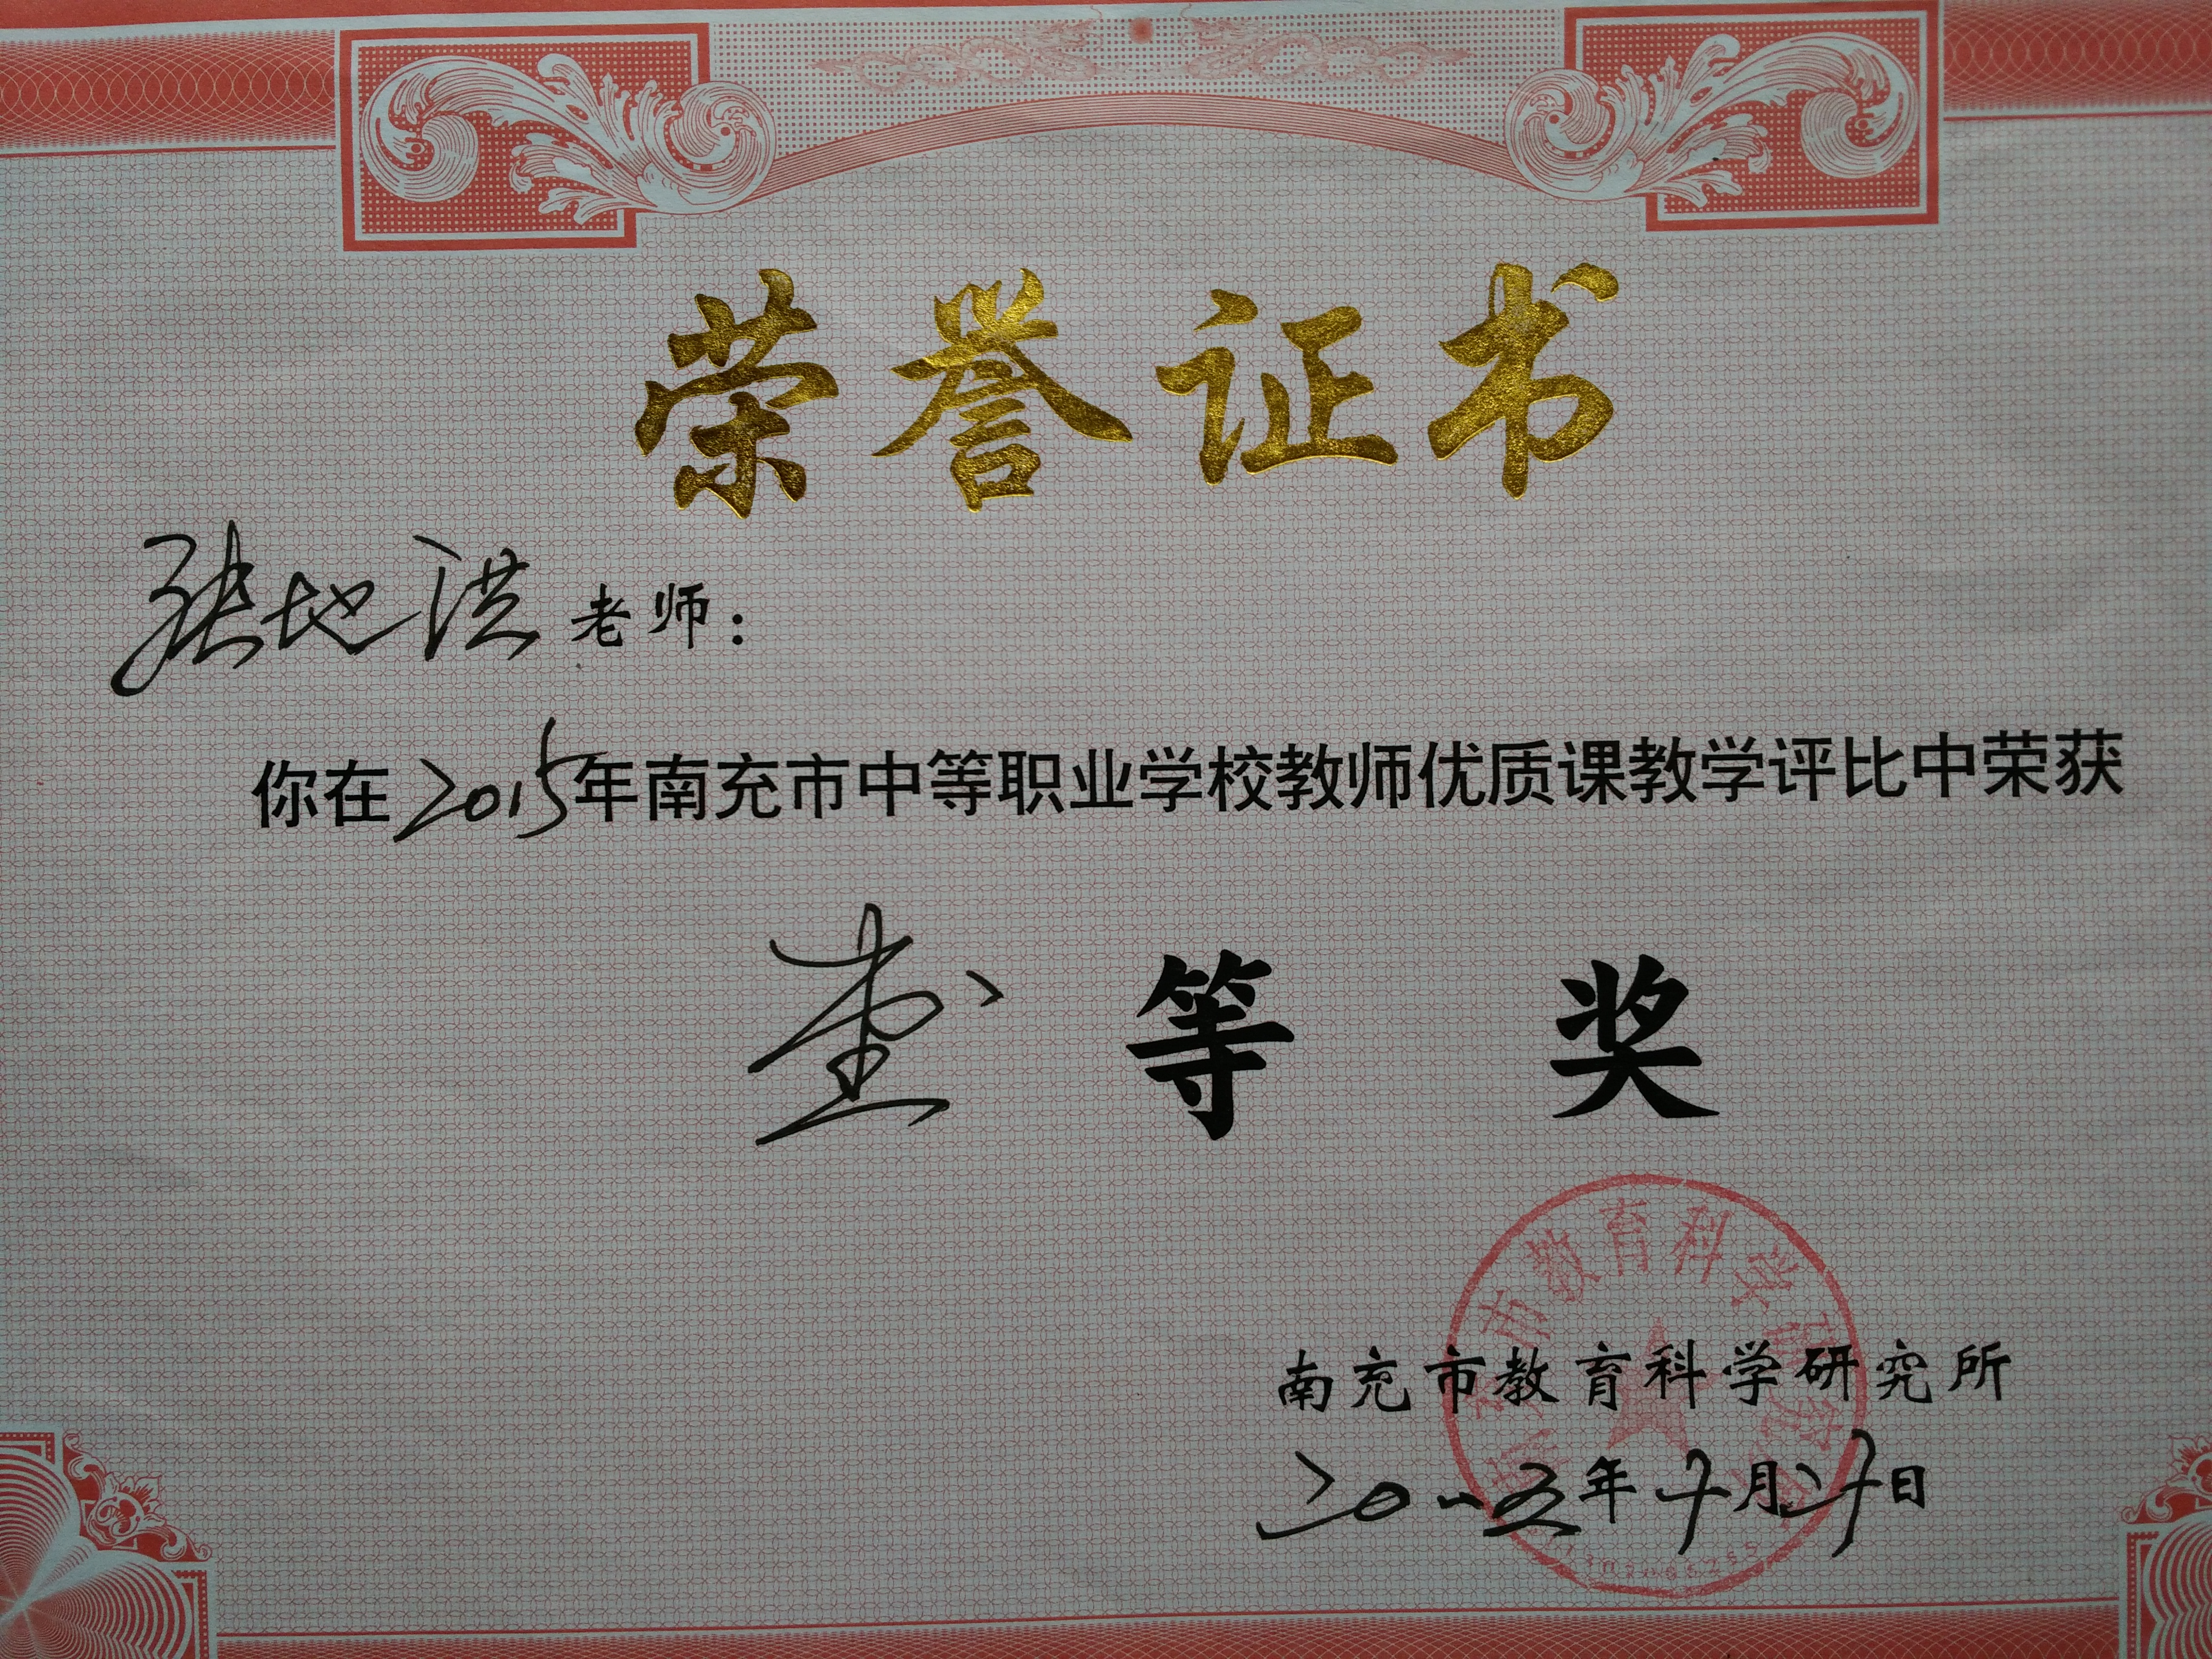 荣誉证书
张地洪老师：
你在2015年南充市中等职业学校教师优质课教学评比中荣获
壹等奖
市教育科学研究
南充市教育科学研究所
二〇一五年十月廿日